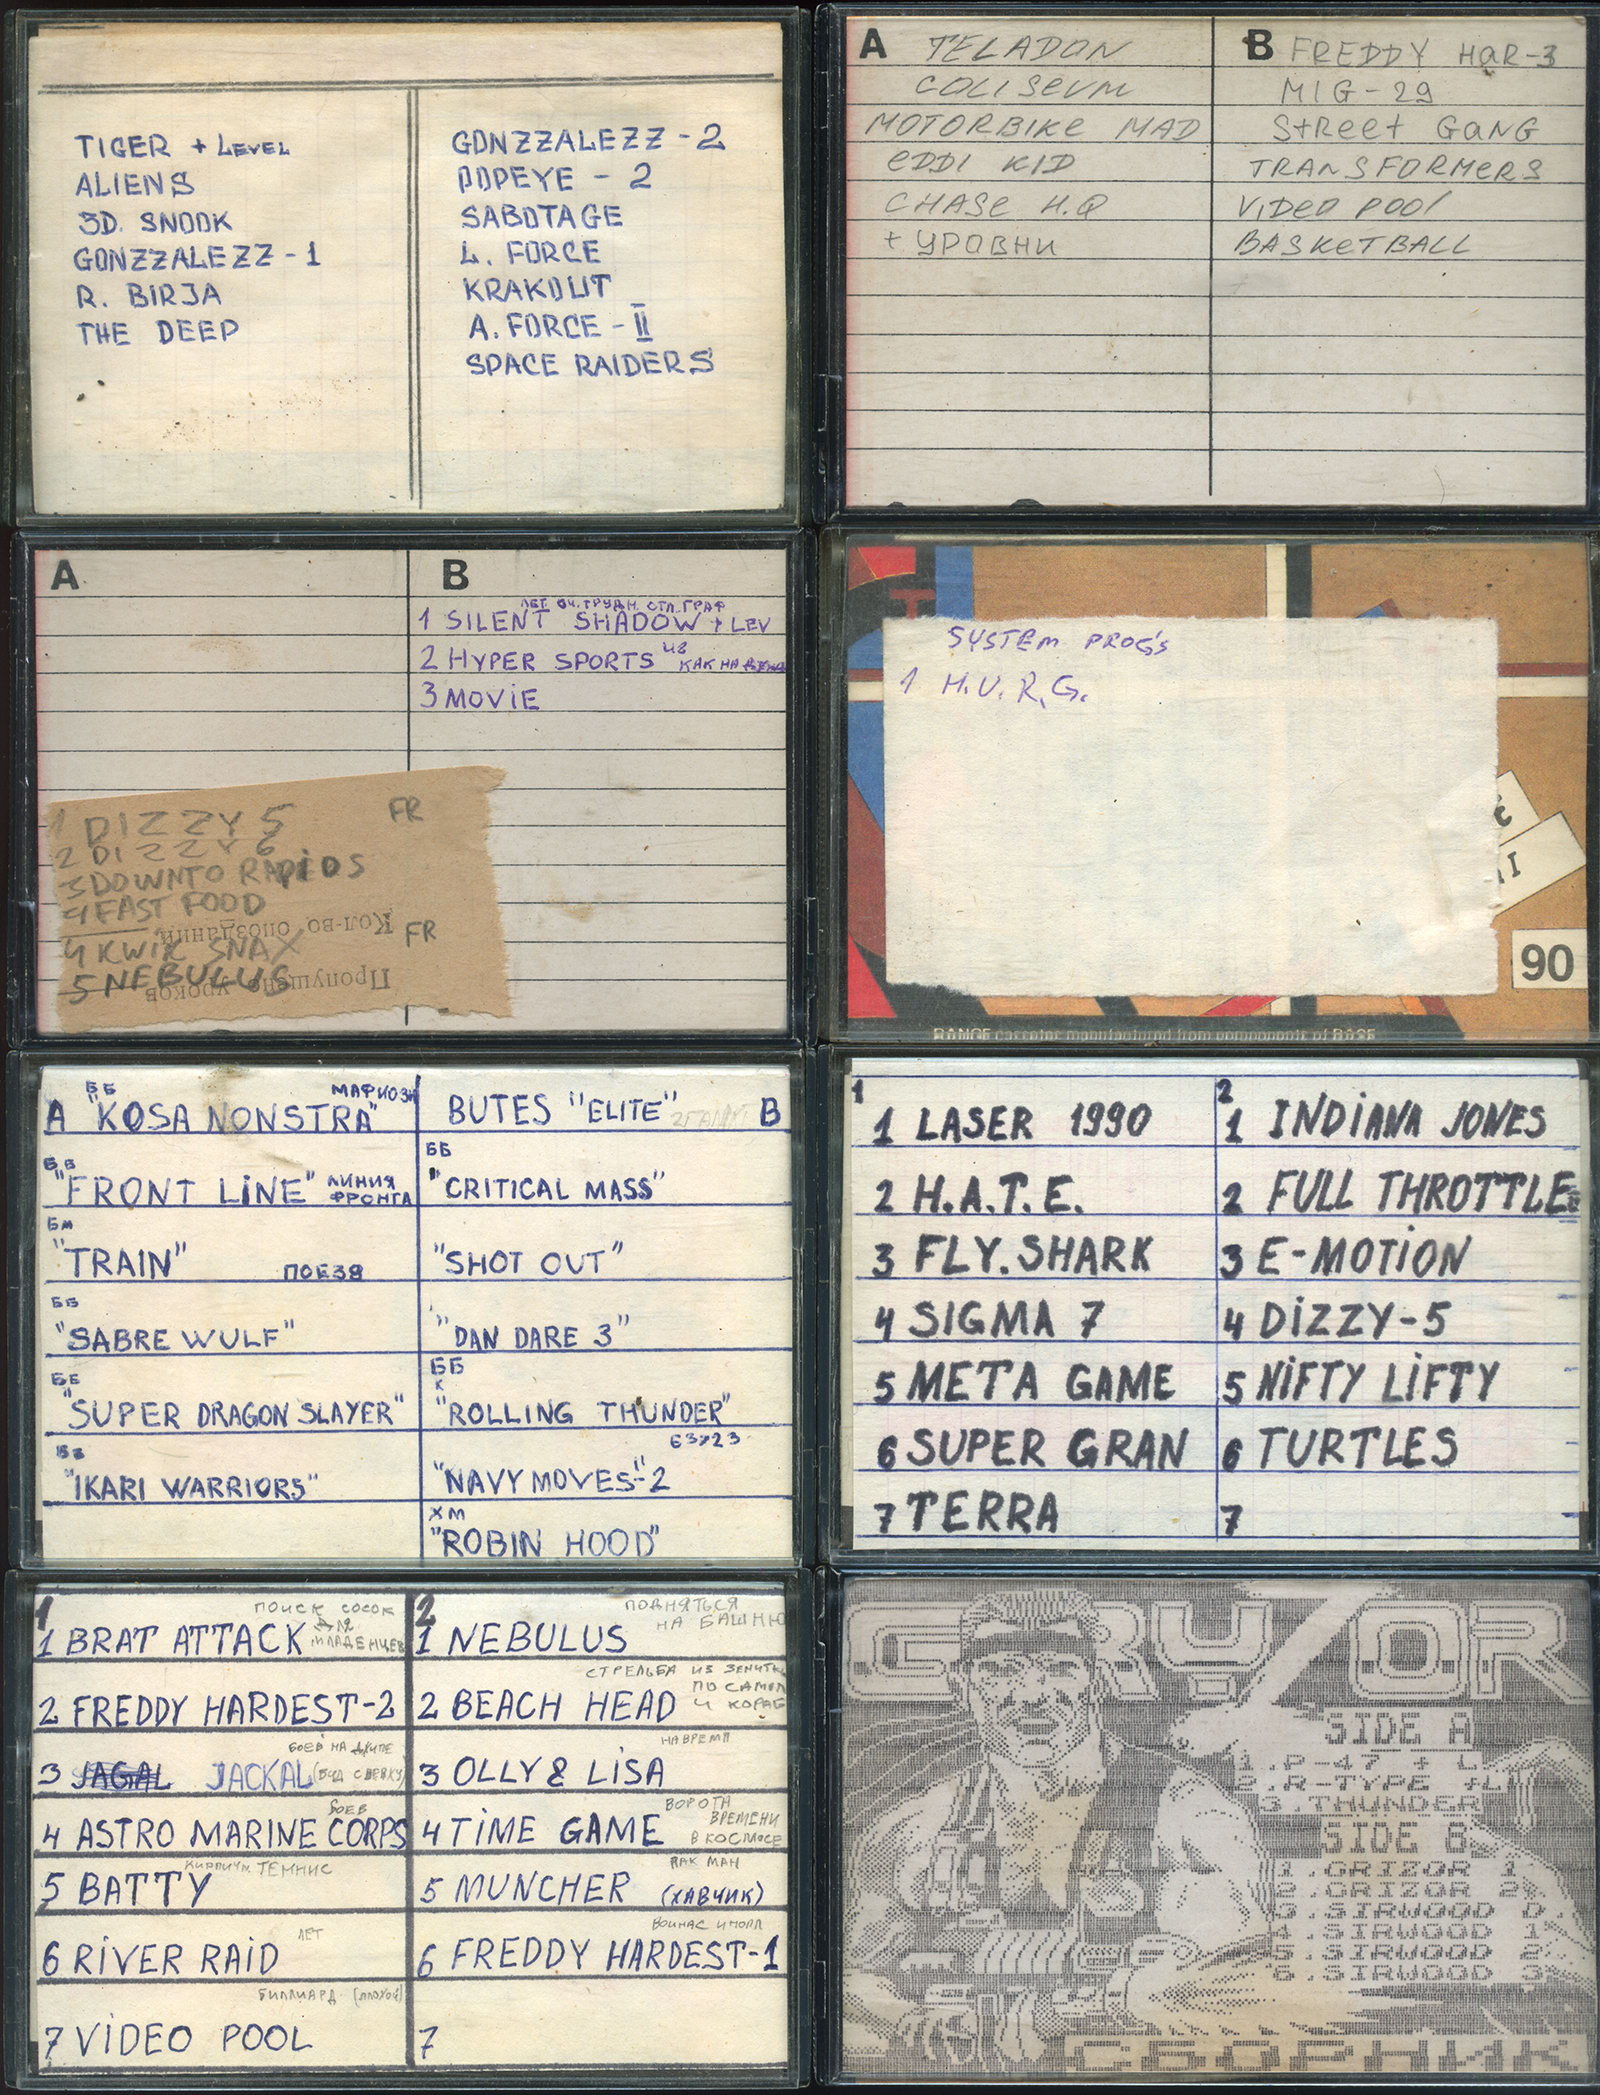 TIGER + LEVEL
ALIENS
3D. SNOOK
GONZZALEZZ - 1
R. BIRJA
THE DEEP
GONZZALEZZ - 2
POPEYE - 2
SABOTAGE
L. FORCE
KRAKOUT
A. FORCE - II
SPACE RAIDERS
A TELADON
COLISEUM
MOTORBIKE MAD
EDDI KID
CHASE H.Q
+ УРОВНИ
B FREDDY HaR-3
MIG-29
StReet GaNG
TRANSFORMERS
VIDEO POOl
BASKETBALL
A
B
ЛЕТ. ОЧ. ТРУДН. ОТЛ. ГРАФ
1 SILENT SHADOW + LEV
2 HYPER SPORTS КАК НА
3 MOVIE
1 DIZZY 5 FR
2 DIZZY 6
3 DOWNTO RAPIDS
4 FAST FOOD
Кол-во опозданий
4 KWIK SNAX FR
5 NEBULUS
Пропущено уроков
SYSTEM PROG'S
1 H.U.R.G.
90
RANGE cassettes manufactured from components of BASF
ББ МАФИОЗИ
A "KOSA NONSTRA"
ББ
"FRONT LINE" ЛИНИЯ ФРОНТА
БМ
"TRAIN" ПОЕЗД
ББ
"SABRE WULF"
ББ
"SUPER DRAGON SLAYER"
"IKARI WARRIORS"
BUTES "ELITE" B
ББ
"CRITICAL MASS"
"SHOT OUT"
"DAN DARE 3"
ББ
К
"ROLLING THUNDER"
63723
"NAVY MOVES-2"
ХМ
"ROBIN HOOD"
1
1 LASER 1990
2 H.A.T.E.
3 FLY. SHARK
4 SIGMA 7
5 META GAME
6 SUPER GRAN
7 TERRA
2
1 INDIANA JONES
2 FULL THROTTLE
3 E-MOTION
4 DIZZY-5
5 NIFTY LIFTY
6 TURTLES
7
1
ПОИСК СОСОК
ДЛЯ
1 BRAT ATTACK МЛАДЕНЦЕВ
2 FREDDY HARDEST-2
БОЕВ НА ДЖИПЕ
3 JAGAL JACKAL
БОЕВ
4 ASTRO MARINE CORPS
КИРПИЧН. ТЕННИС
5 BATTY
ЛЕТ
6 RIVER RAID
БИЛЛИАРД (ПЛОХОЙ)
7 VIDEO POOL
2
ПОДНЯТЬСЯ
НА БАШНЮ
1 NEBULUS
СТРЕЛЬБА ИЗ ЗЕНИТК
ПО САМОЛ
2 BEACH HEAD И КОРАБ
НА ВРЕМЯ
3 OLLY & LISA
ВОРОТА
ВРЕМЕНИ
4 TIME GAME В КОСМОСЕ
ПАК МАН
5 MUNCHER (ХАВЧИК)
6 FREDDY HARDEST-1
7
GRYZOR
SIDE A
1.P-47 + L
2.R-TYPE +L
3.THUNDER
SIDE B
1.GRIZOR 1
2.GRIZOR 2
3.SIRWOOD D
4.SIRWOOD 1
5.SIRWOOD 2
6.SIRWOOD 3
СБОРНИК